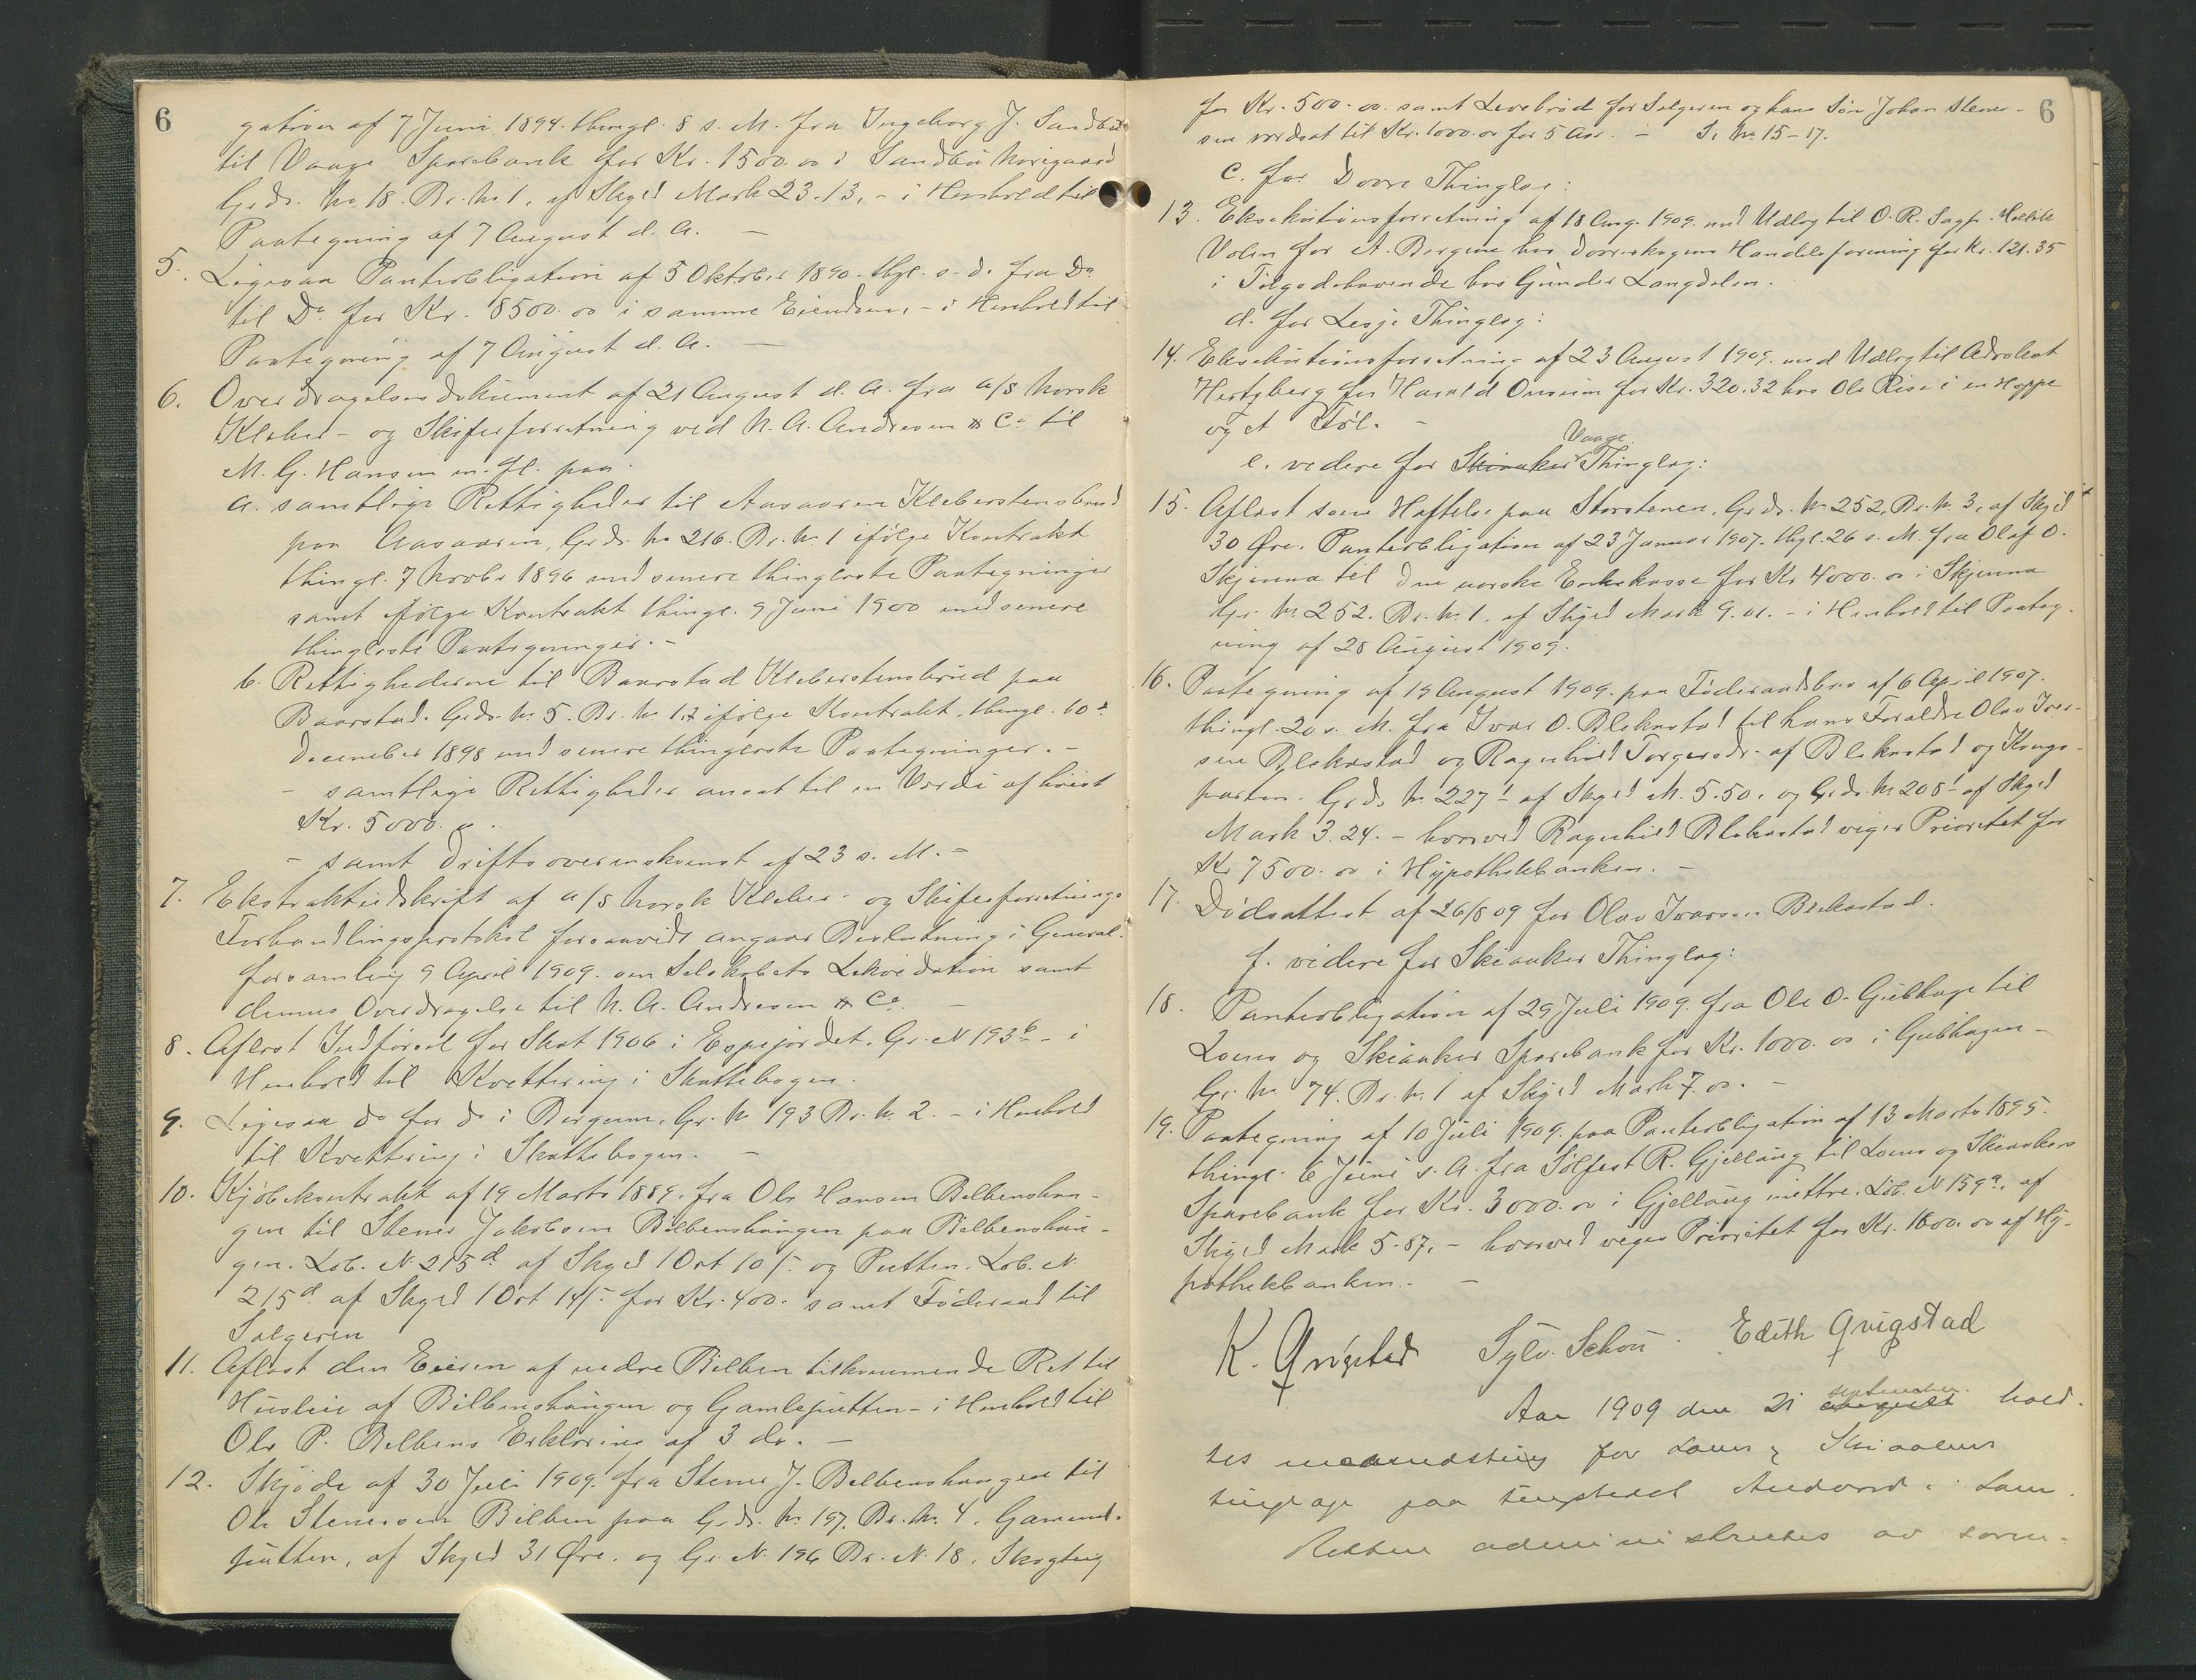 6
gation af 7 Juni 1894. thingl. 8 s. M. fra Ingeborg J. Sandbu
til Vaage Sparebank for Kr. 1500.00 i Sandbu Norigaard
Grds. No. 18. Br. No 1. af Skyld Mark 23.13, - i Henhold til
Paategning af 7 August d. A. -
5. Ligesaa Pantobligation af 5 Oktober 1890. thgl. s. d. fra Do
til Do for Kr. 8500.00 i samme Eiendom, - i Henhold til
Paategning af 7 August d. A. -
6. Overdragelsesdokument af 21 August d. A. fra A/S Norsk
Kleber- og Skiferforretning ved N. A. Andresen & Co til
M. G. Hansen m. fl. paa
a. samtlige Rettigheder til Aasaaren Kleberstensbrud
paa Aasaaren, Grds. No 216. Br. No 1 ifølge Kontrakt
thingl. 7 Novbr 1896 med senere thinglæste Paategninger
samt ifølge Kontrakt thingl. 9 Juni 1900 med senere
thinglæste Paategninger. -
b. Rettighederne til Baarstad Kleberstensbrud paa
Baarstad. Grds. No. 5. Br. No. 1,2 ifølge Kontrakt. thingl. 10de
December 1898 med senere thinglæste Paategninger. -
- samtlige Rettigheder ansat til en Værdi af høist
Kr. 5000.00.
- samt Driftsoverenskomst af 23 s. M. -
7. Ekstraktudskrift af A/S Norsk Kleber- og Skiferforretnings
Forhandlingsprotokol forsaavidt angaar Beslutning i General-
forsamling 9 April 1909. om Selskabets Likvidation samt
dennes Overdragelse til N. A. Andresen & Co. -
8. Aflæst Indførsel for Skat 1906 i Espejordet. Gr. N 193 6 - i
Henhold til Kvittering i Skattebogen.
9. Ligesaa do for do i Bergum. Gr. No 193 Br. No. 2. - i Henhold
til Kvittering i Skattebogen. -
10. Kjøbekontrakt af 19 Marts 1889. fra Ole Hansen Bilbenshau-
gen til Stener Jakobsen Bilbenshaugen paa Bilbenshau-
gen. Løb. N 215d af Skyld 1 Ort 10 s. og Putten. Løb. N
215d. af Skyld 1 Ort 14 s. for Kr. 400. samt Føderaad til
Sælgeren
11. Aflæst den Eieren af nedre Bilben tilkommende Ret til
Husleie af Bilbenshaugen og Gamleputten - i Henhold til
Ole P. Bilbens Erklæring af 3 ds. -
12. Skjøde af 30 Juli 1909. fra Stener J. Bilbenshaugen til
Ole Stenersen Bilben paa Grds. No. 197. Br. No. 4. Gammel-
putten, af Skyld 31 Øre. og Gr. N. 196 Br. N. 18. Skogteig
6
for Kr. 500.00. samt Levebrød for Sælgeren og hans Søn Johan Stener-
sen værdsat til Kr. 1000.00 for 5 Aar. - S. No 15-17.
c. for Dovre Thinglag:
13. Eksekutionsforretning af 18 Aug. 1909. med Udlæg til O. R. Sagf.
Volen for A. Bergene hos Dovreskogens Handelsforening for Kr. 121.35
i Tilgodehavende hos Gunder Langdalen.
d. for Lesje Thinglag:
14. Eksekutionsforretning af 23 August 1909. med Udlæg til Advokat
Hertzberg for Harald Onsum for Kr. 320.32 hos Ole Rise i en Hoppe
og et Føl. -
Vaage
e. videre for Skiaaker Thinglag:
15. Aflæst som Heftelse paa Storstenen, Grds. No 252. Br. No. 3. af Skyld
30 Øre. Pantobligation af 23 Januar 1907. thgl. 26 s. M. fra Olaf O.
Skjenna til Den norske Enkekasse for Kr 4000.00 i Skjenna
Gr. No. 252. Br. No. 1. af Skyld Mark 9.01. - i Henhold til Paateg-
ning af 28 August 1909.
16. Paategning af 19 August 1909. paa Føderaadsbrev af 6 April 1907.
thingl. 20 s. M. fra Ivar O. Blekastad til hans Forældre Olav Iver-
sen Blekastad og Ragnhild Torgersdr. af Blekastad og Kongs-
parten. Grds. No. 227 1 af Skyld M. 5.50. og Grds. No. 208 1 af Skyld
Mark 3.24. - hvorved Ragnhild Blekastad viger Prioritet for
Kr 7500.00 i Hypothekbanken. -
17. Dødsattest af 26/8 09 for Olav Ivarsen Blekastad.
f. videre for Skiaaker Thinglag:
18. Pantobligation af 29 Juli 1909. fra Ole O. Gubhage til
Loms og Skiaaker Sparebank for Kr. 1000.00 i Gubhagen -
Gr. No. 74. Br. No. 1 af Skyld Mark 7.00. -
19. Paategning af 10 Juli 1909. paa Pantobligation af 13 Marts 1895.
thingl. 6 Juni s. A. fra Sølfest R. Gjellaug til Loms og Skiaakers
Sparebank for Kr. 3000.00 i Gjellaug mettre. Løb. N 159a. af
Skyld Mark 5.87. - hvorved viges Prioritet for Kr. 1600.00 af Hy-
pothekbanken. -
K. Qvigstad Sylv. Schou Edith Qvigstad
september
Aar 1909 den 21 august hold-
tes maanedsting for Lom & Skiaakers
tinglage paa tingstedet Andvord i Lom.
Retten administreredes av soren-